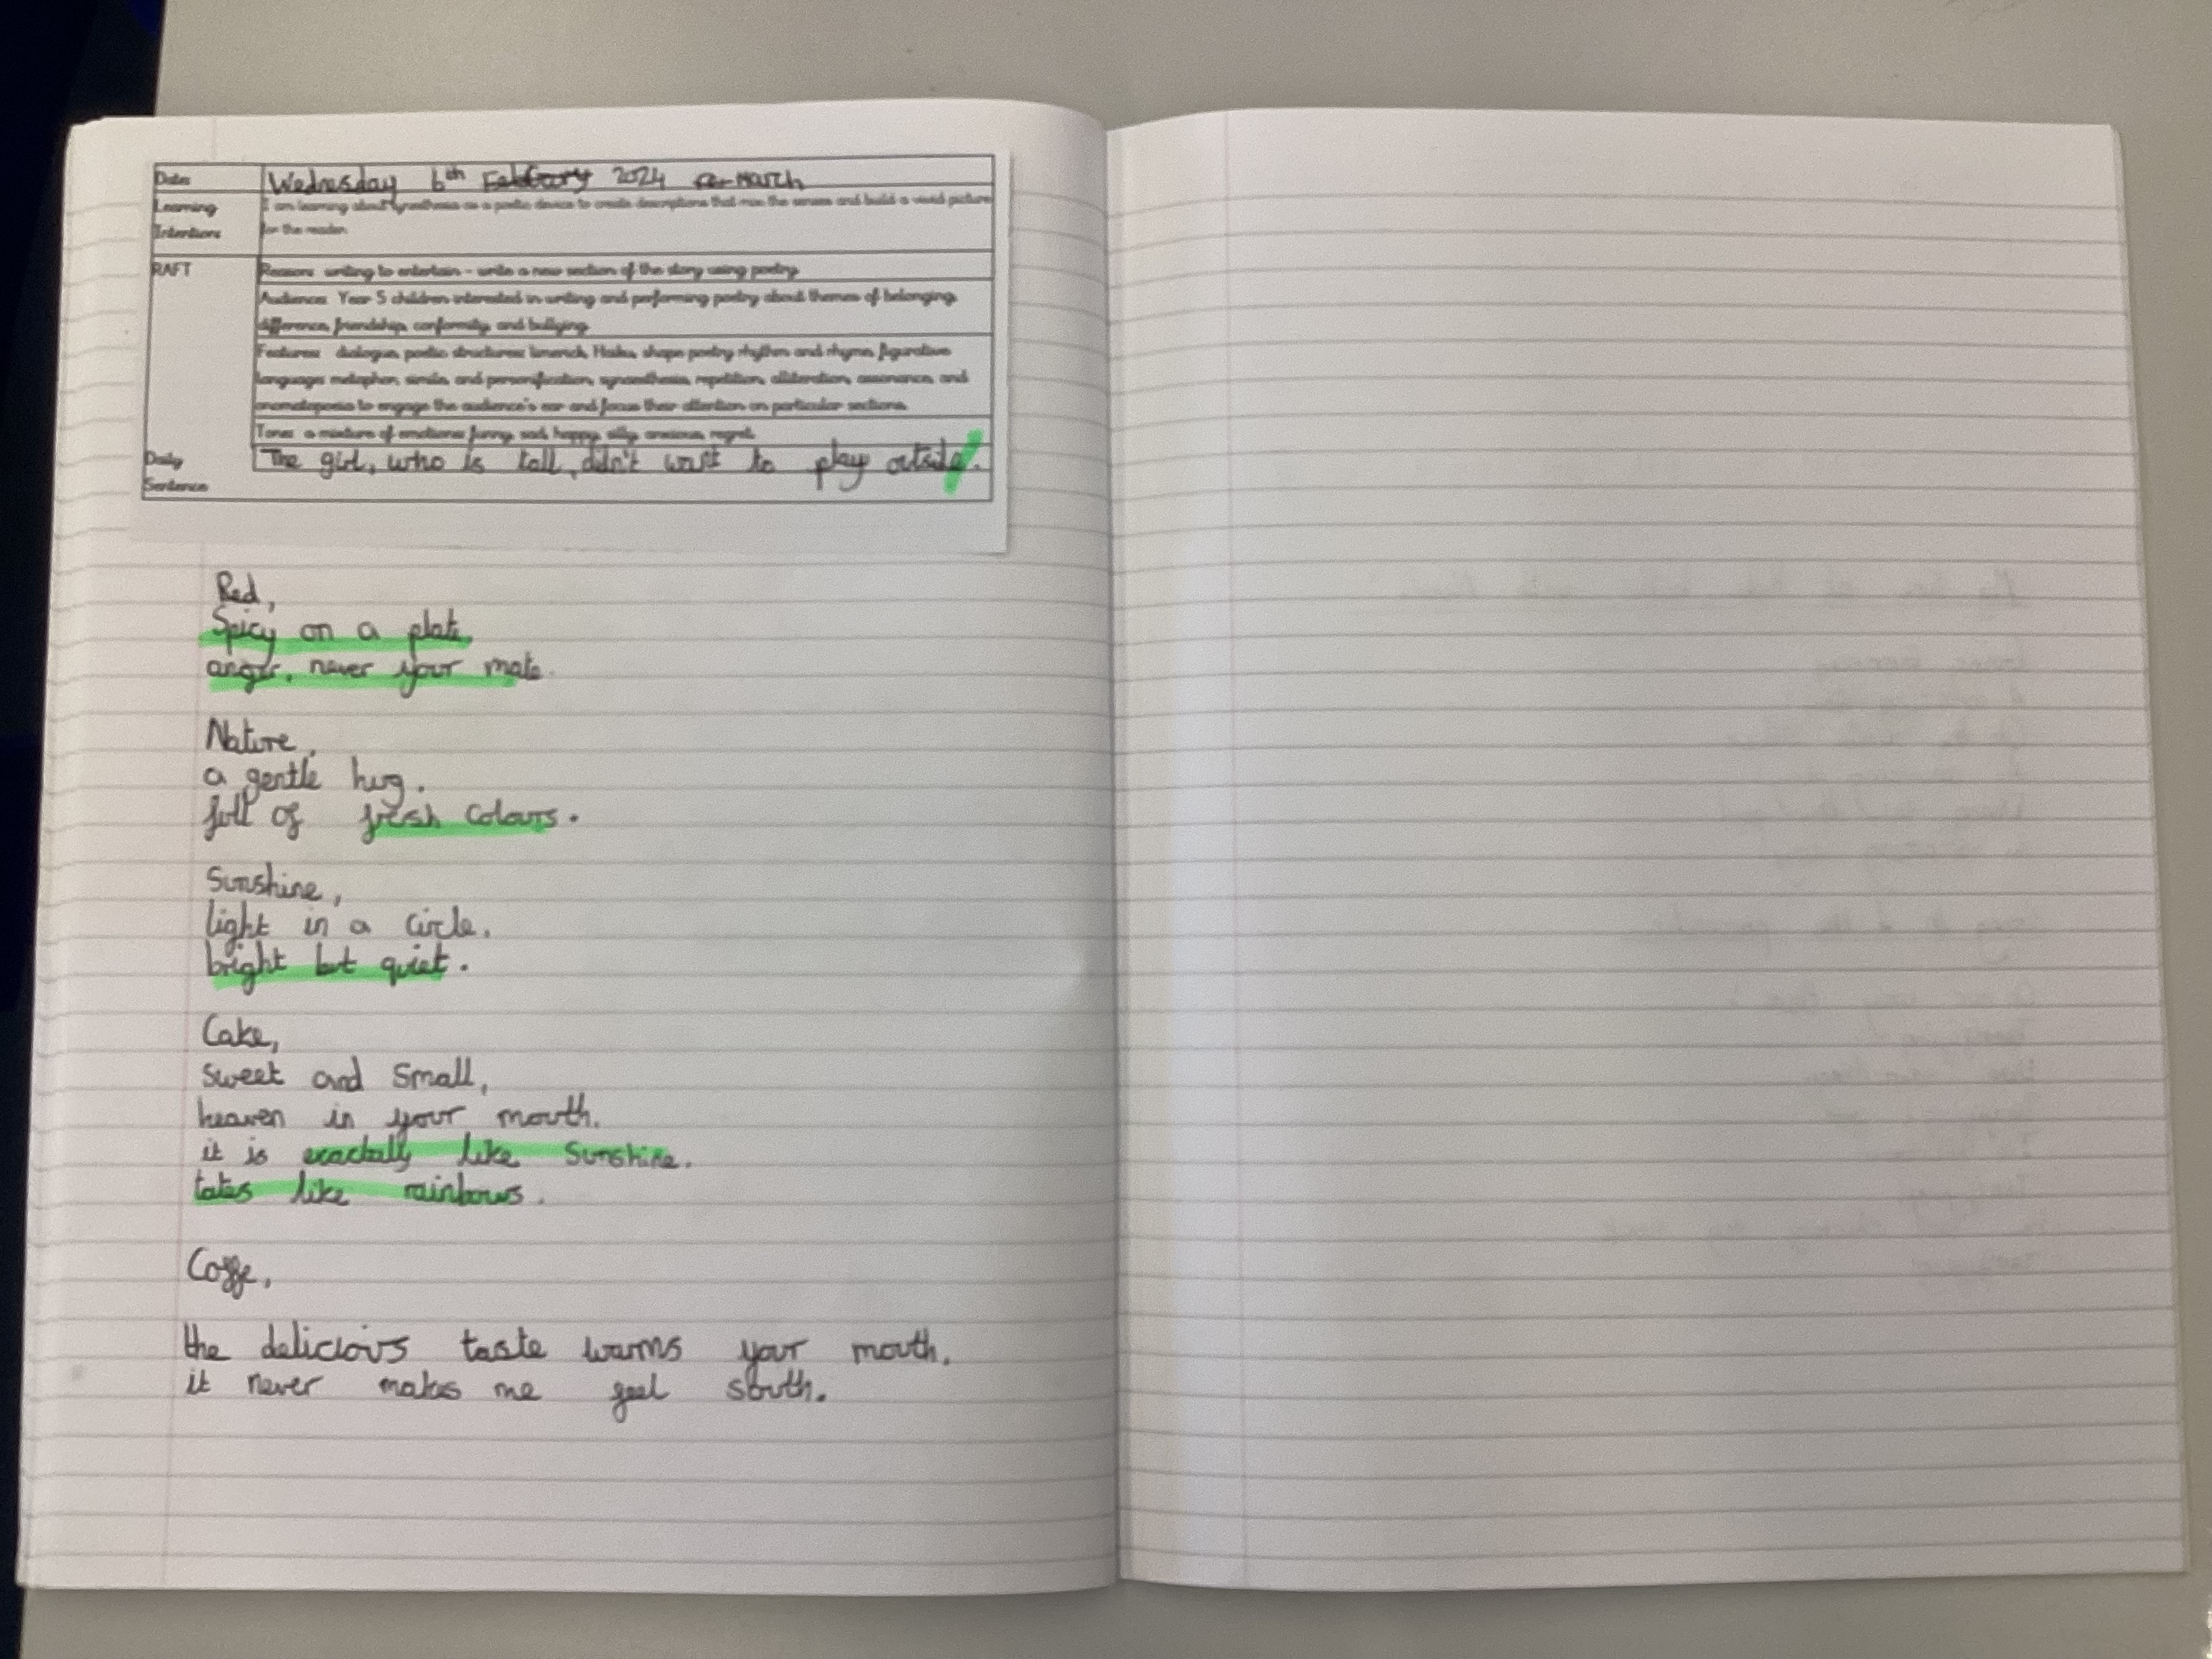 Date:
Wednesday 6th February 2024 March
Learning
Intentions
I am learning about synesthesia as a poetic device to create descriptions that mix the senses and build a vivid picture
for the reader.
RAFT
Reason: writing to entertain - write a new section of the story using poetry
Audience: Year 5 children interested in writing and performing poetry about themes of belonging,
difference, friendship, conformity, and bullying
Features: dialogue, poetic structures: limerick, Haiku, shape poetry rhythm and rhyme, figurative
language: metaphor, simile, and personification, synaesthesia, repetition, alliteration, assonance, and
onomatopoeia to engage the audience's ear and focus their attention on particular sections.
Tone: a mixture of emotions: funny, sad, happy, silly, anxious, regret.
Daily
Sentence
The girl, who is tall, didn't want to play outside.
Red,
Spicy on a plate,
anger, never your mate.
Nature,
a gentle hug.
full of fresh colours.
Sunshine,
light in a circle.
bright but quiet.
Cake,
sweet and small,
heaven in your mouth.
it is exactally like sunshine.
tates like rainbows.
Coffe,
the delicious taste warms your mouth.
it never makes me feel south.